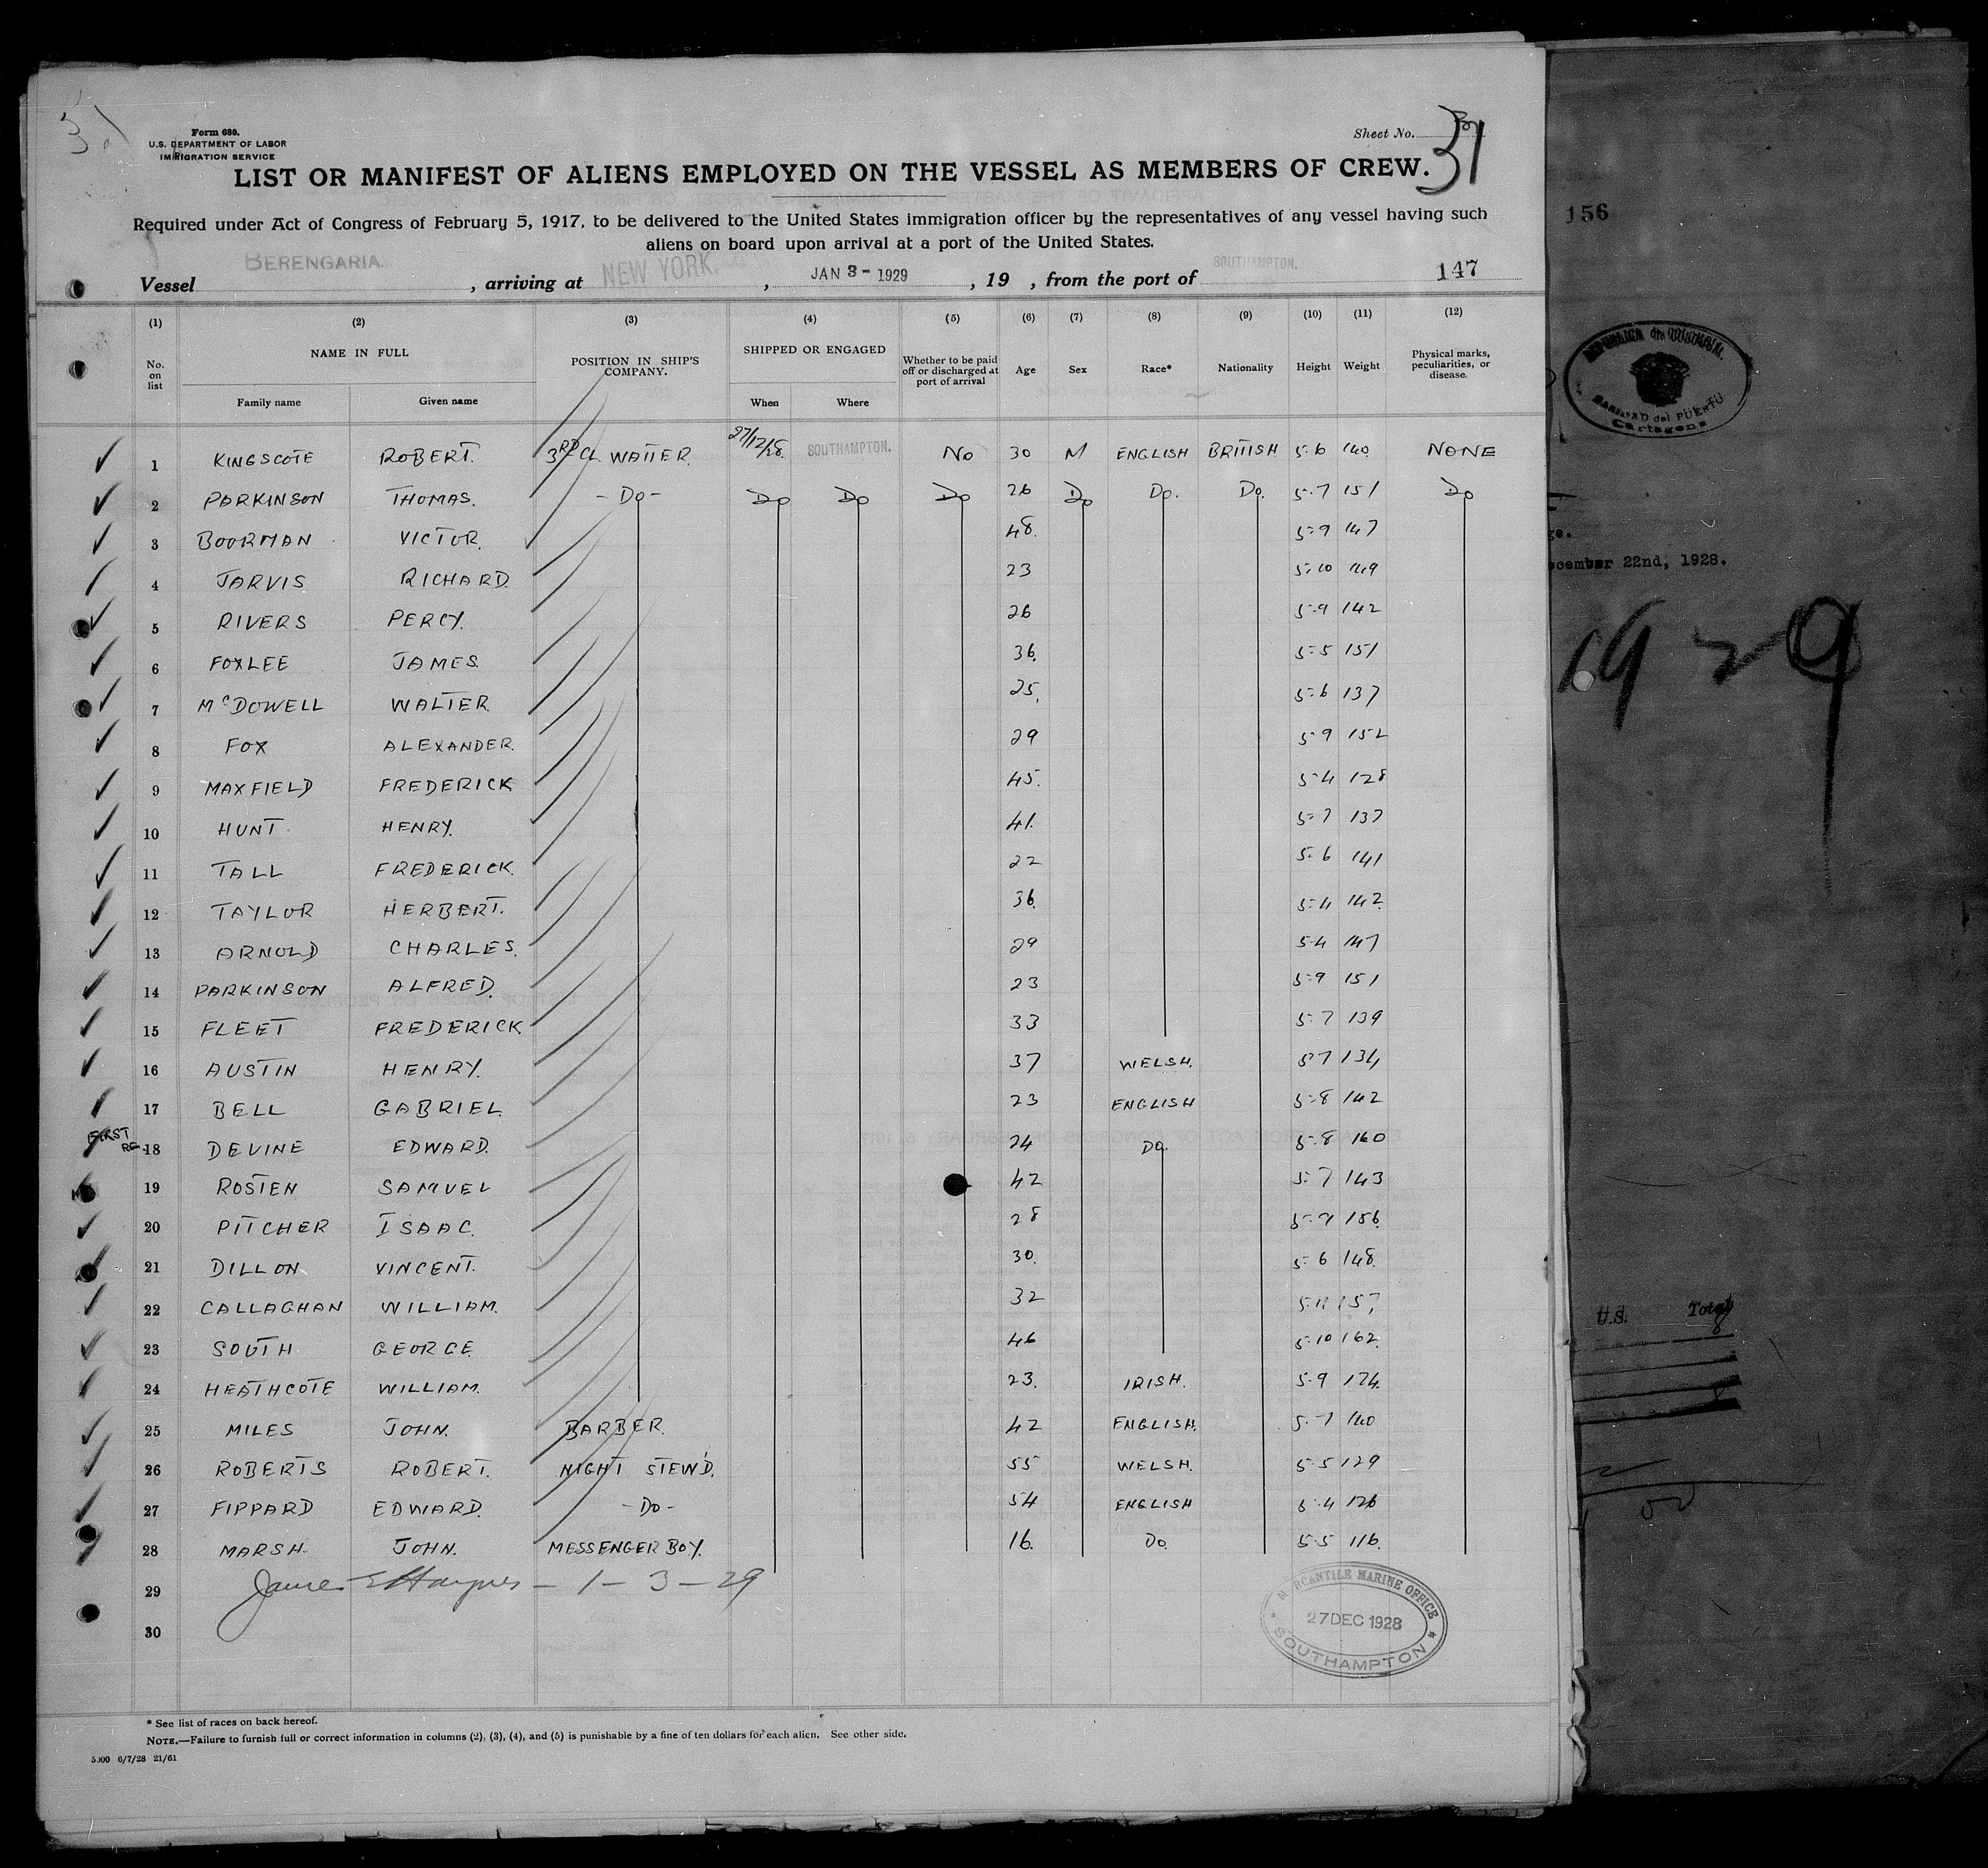 Form 680.
U.S. DEPARTMENT OF LABOR
IMMIGRATION SERVICE
Sheet No. 31
LIST OR MANIFEST OF ALIENS EMPLOYED ON THE VESSEL AS MEMBERS OF CREW.
Required under Act of Congress of February 5, 1917, to be delivered to the United States immigration officer by the representatives of any vessel having such
aliens on board upon arrival at a port of the United States.
Vessel BERENGARIA. , arriving at NEW YORK. , JAN 3 - 1929 , 19 , from the port of SOUTHAMPTON. 147
(1) (2) (3) (4) (5) (6) (7) (8) (9) (10) (11) (12)
No. on list NAME IN FULL Family name Given name POSITION IN SHIP'S COMPANY. SHIPPED OR ENGAGED When Where Whether to be paid off or discharged at port of arrival Age Sex Race* Nationality Height Weight Physical marks, peculiarities, or disease.
1 KINGSCOTE ROBERT. 3RD CL WAITER. 27/12/28. SOUTHAMPTON. NO 30 M ENGLISH BRITISH 5-6 140. NONE
2 PARKINSON THOMAS. -DO- DO DO DO 26 DO DO. DO. 5-7 151 DO
3 BOORMAN VICTOR. 48. 5-9 147
4 JARVIS RICHARD. 23 5-10 149
5 RIVERS PERCY. 26 5-9 142
6 FOXLEE JAMES. 36. 5-5 151
7 McDOWELL WALTER. 25. 5-6 137
8 FOX ALEXANDER. 29 5-9 152
9 MAXFIELD FREDERICK 45. 5-4 128
10 HUNT HENRY. 41. 5-7 137
11 TALL FREDERICK. 22 5-6 141
12 TAYLOR HERBERT. 36. 5-4 142.
13 ARNOLD CHARLES. 29 5-4 147
14 PARKINSON ALFRED. 23 5-9 151
15 FLEET FREDERICK 33 5-7 139
16 AUSTIN HENRY. 37 WELSH. 5-7 134
17 BELL GABRIEL. 23 ENGLISH 5-8 142
FIRST
18 DEVINE EDWARD. 24 DO. 5-8 160
19 ROSTEN SAMUEL 42 5-7 143
20 PITCHER ISAAC. 28 5-9 156.
21 DILLON VINCENT. 30. 5-6 148.
22 CALLAGHAN WILLIAM. 32 5-11 157
23 SOUTH GEORGE. 46 5-10 162.
24 HEATHCOTE WILLIAM. 23. IRISH. 5-9 174.
25 MILES JOHN. BARBER. 42 ENGLISH. 5-7 140
26 ROBERTS ROBERT. NIGHT STEW'D. 55 WELSH. 5-5 129
27 FIPPARD EDWARD. -DO- 54 ENGLISH 5-4 126
28 MARSH JOHN. MESSENGER BOY. 16. DO. 5-5 116.
29 James E Haynes - 1-3-29
30
MERCANTILE MARINE OFFICE
27 DEC 1928
SOUTHAMPTON
* See list of races on back hereof.
NOTE.—Failure to furnish full or correct information in columns (2), (3), (4), and (5) is punishable by a fine of ten dollars for each alien. See other side.
5000 6/7/28 21/61
156
SANIDAD del PUERTO
Cartagena
ge.
ecember 22nd, 1928.
1929
U.S. Total